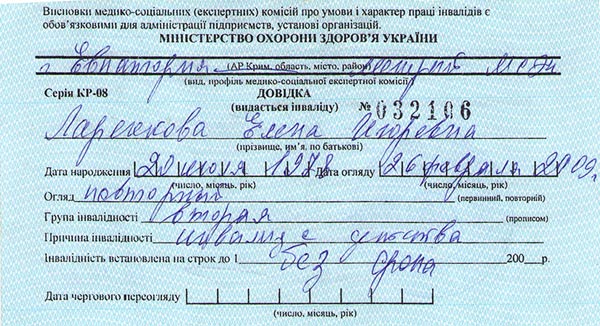 Висновки медико-соціальних (експертних) комісій про умови і характер праці інвалідів є
обов'язковими для адміністрації підприємств, установі організацій.
МІНІСТЕРСТВО ОХОРОНИ ЗДОРОВ'Я УКРАЇНИ
г. Евпатория
(АР Крим, область, місто, район)
(вид, профіль медико-соціальної експертної комісії)
Серія КР-08 ДОВІДКА
(видається інваліду) № 032106
Елена Игоревна
(прізвище, ім'я, по батькові)
Дата народження 20 июля 1978 Дата огляду 26 февраля 2009г
(число, місяць, рік) (число, місяць, рік)
Огляд повторный
(первинний, повторний)
Група інвалідності вторая (прописом)
Причина інвалідності инвалид с детства
Інвалідність встановлена на строк до 1 без срока 200 р.
Дата чергового переогляду
(число, місяць, рік)